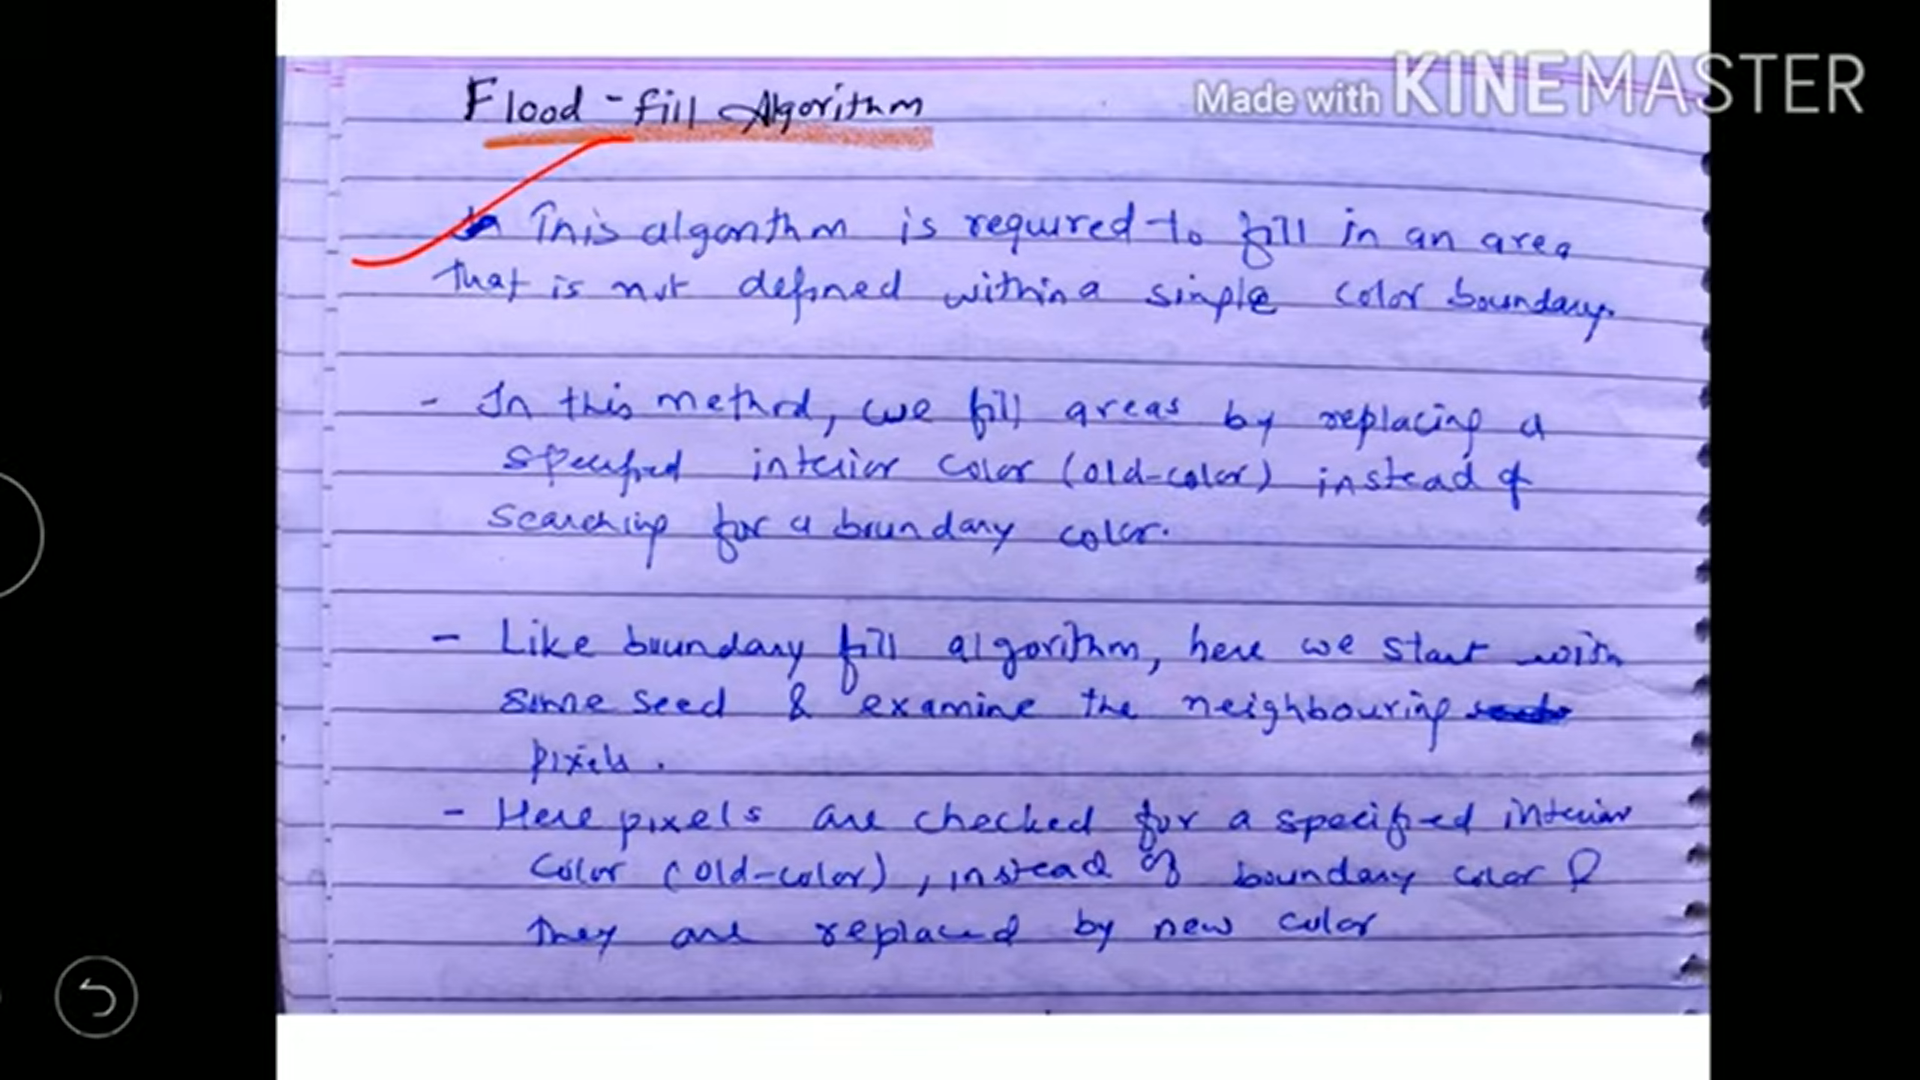 Made with KINEMASTER
Flood - fill Algorithm
This algorithm is required to fill in an area
that is not defined within a simple color boundary.
- In this method, we fill areas by replacing a
specified interior color (old-color) instead of
searching for a boundary color.
- Like boundary fill algorithm, here we start with
some seed & examine the neighbouring
pixels.
- Here pixels are checked for a specified interior
color (old-color), instead of boundary color &
they are replaced by new color